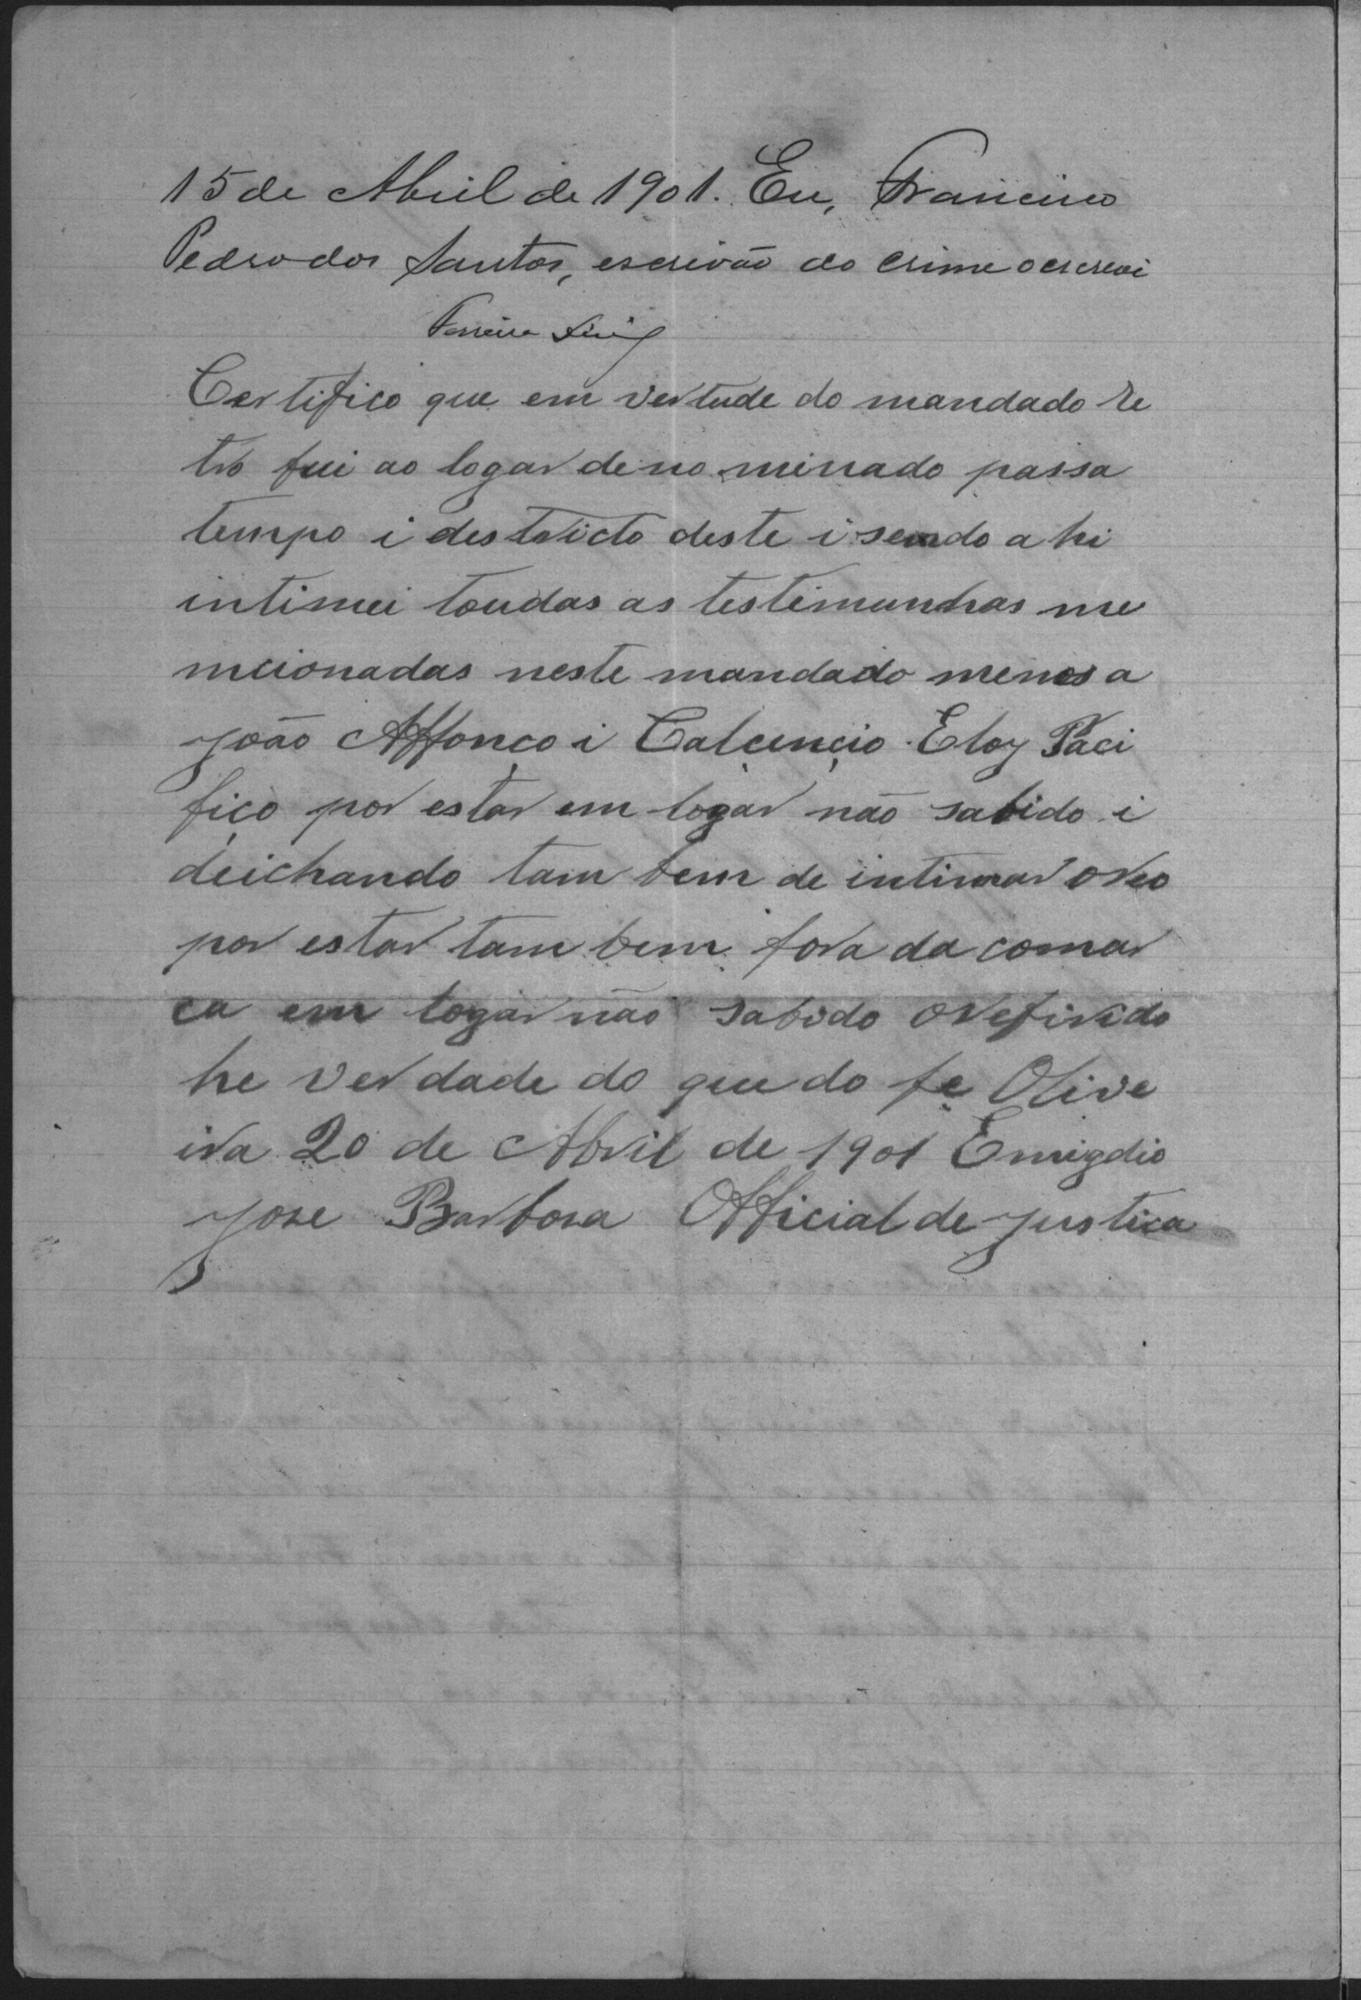 15 de Abril de 1901. Eu, Francisco
Pedro dos Santos, escrivão do crime o escrevi
Ferreira
Certifico que em vertude do mandado re
tro fui ao logar de no minado passa
tempo i destricto deste i sendo a hi
intimei toudas as testemunhas me
mcionadas neste mandado menos a
João Affonço i Calcuncio Eloy Paci
fiço por estar em logar não sabido i
deichando tam bem de intimar oreo
por estar tam bem fora da comar
ca em logar não sabido orefirido
he verdade do que do fe Olive
ira 20 de Abril de 1901 Emigdio
Jose Barbosa Official de Justica